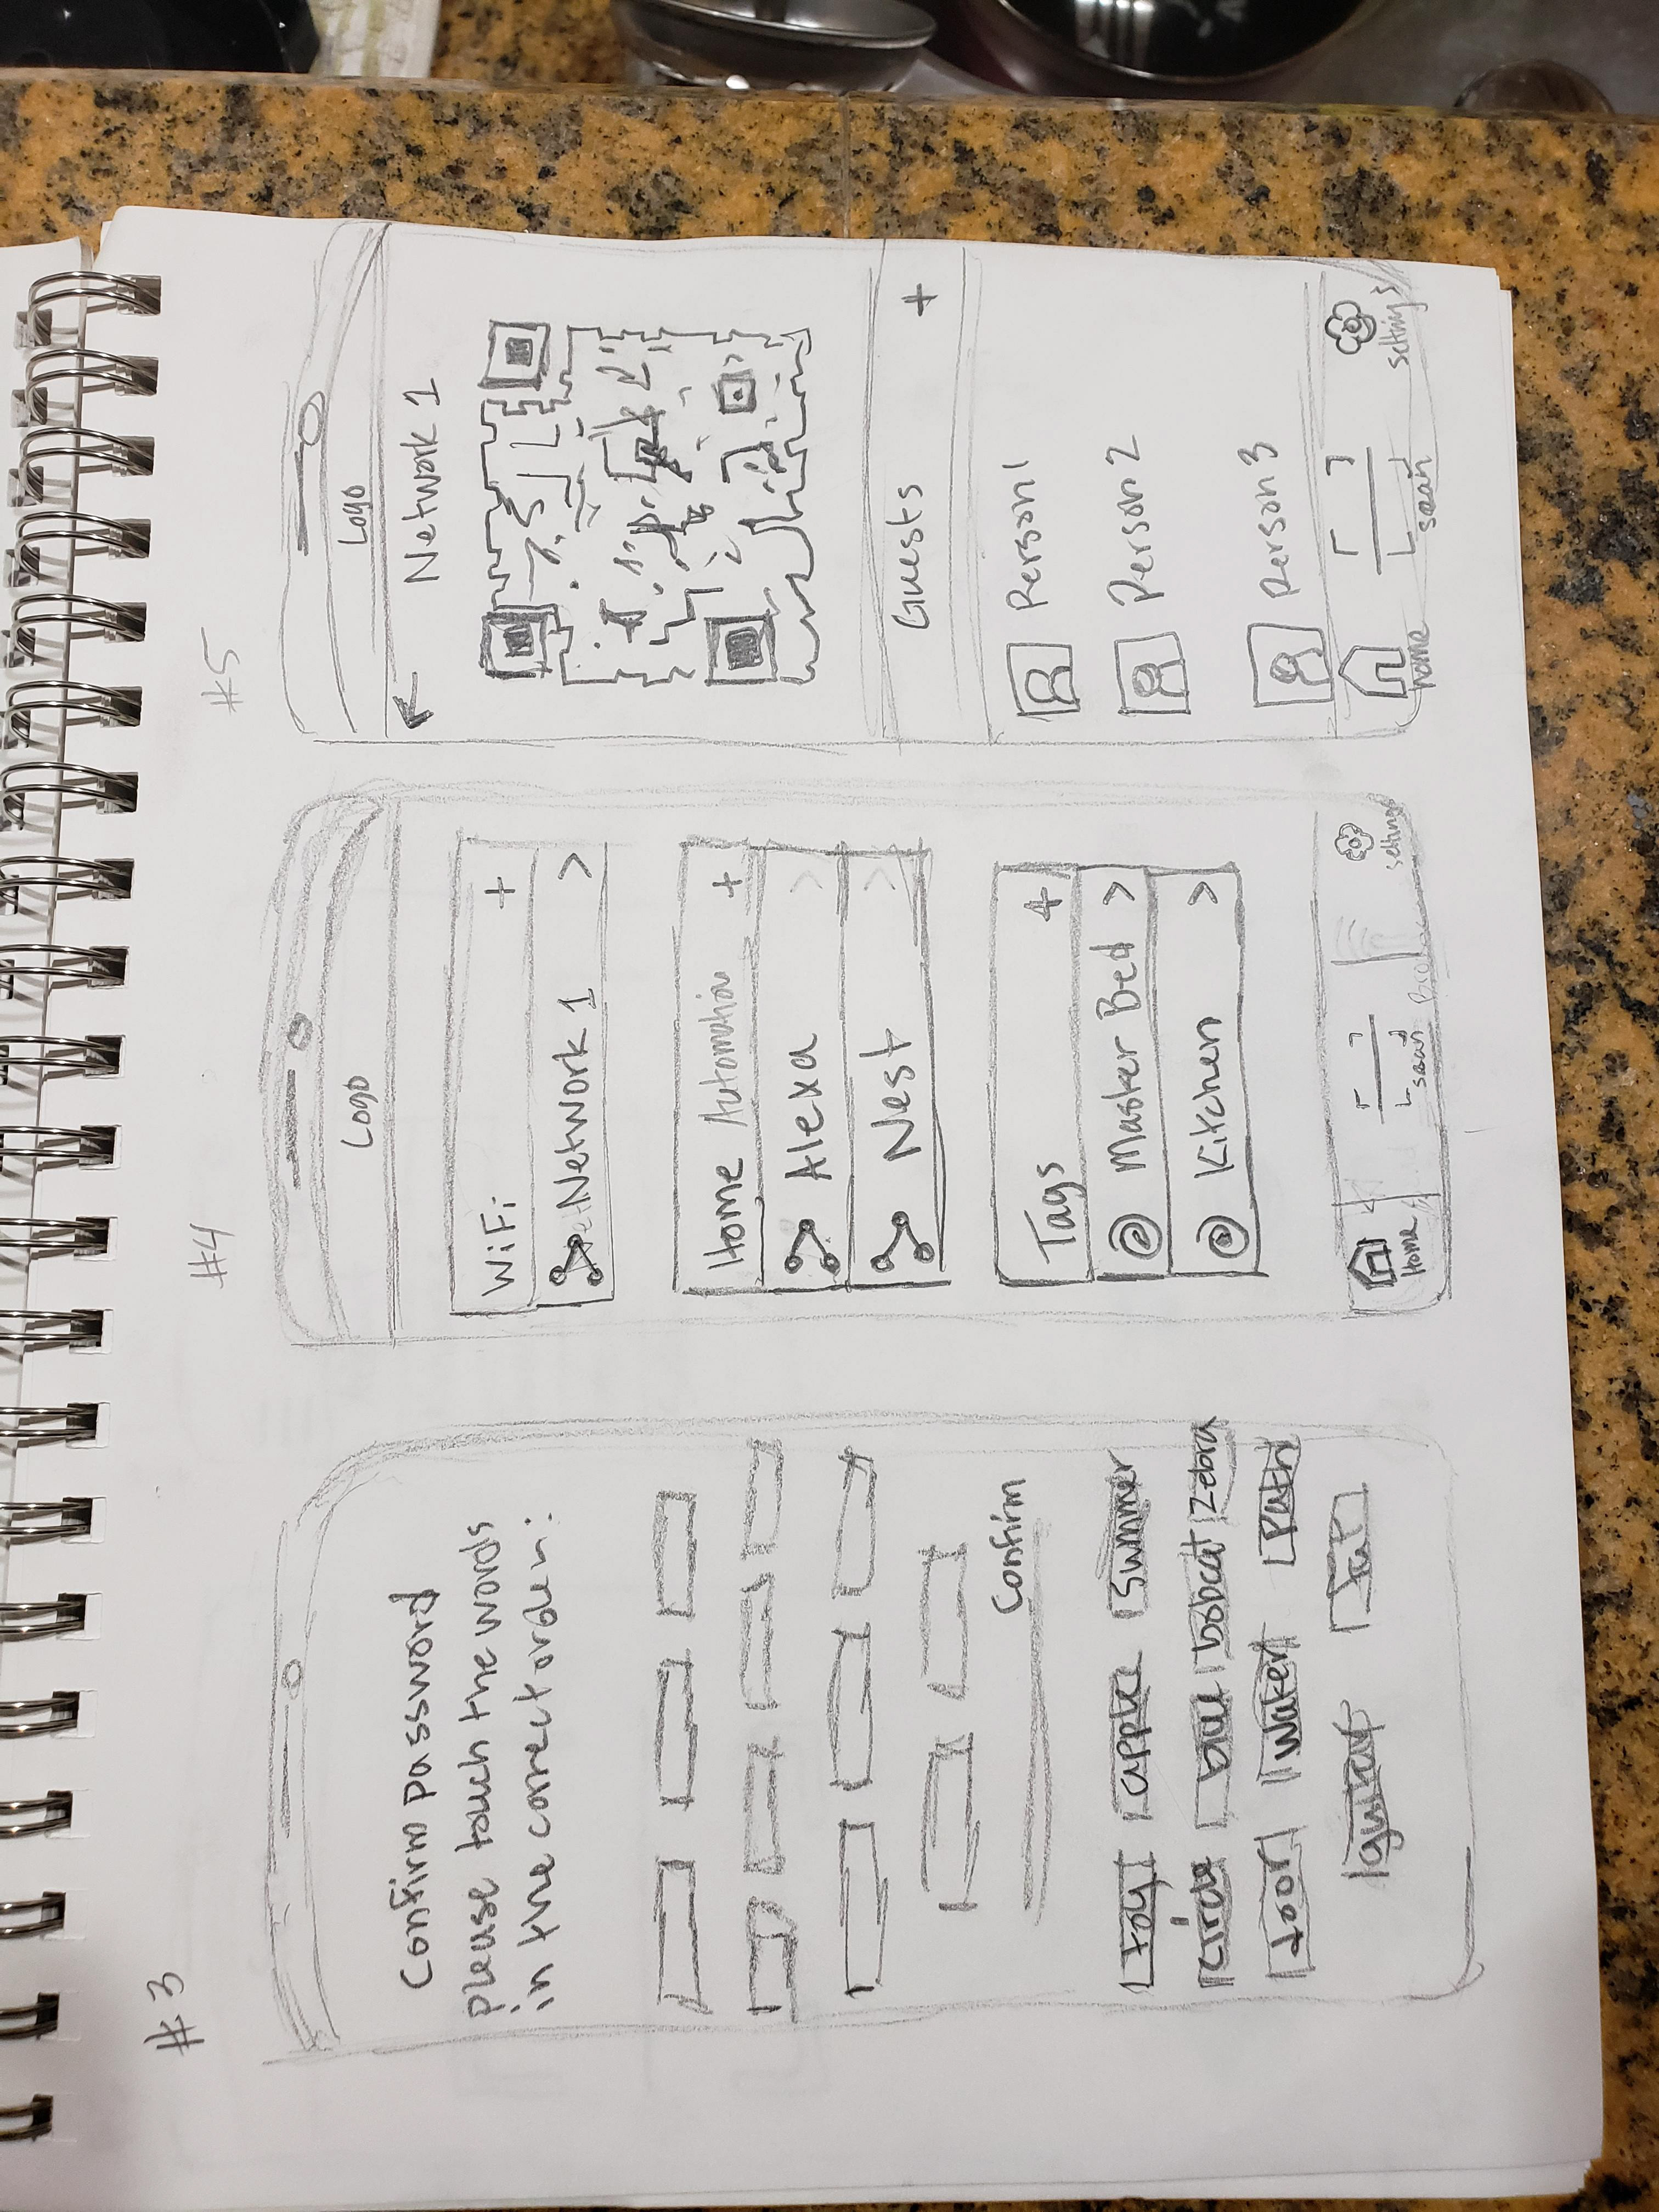 #3
Confirm password
please touch the words
in the correct order:
Confirm
toy apple summer
circle blue bobcat zebra
tool water path
guitar
#4
Logo
WiFi +
Network 1 >
Home Automation +
Alexa >
Nest >
Tags +
@ Master Bed >
@ Kitchen >
Home scan settings
#5
Logo
← Network 1
Guests +
Person 1
Person 2
Person 3
home scan settings